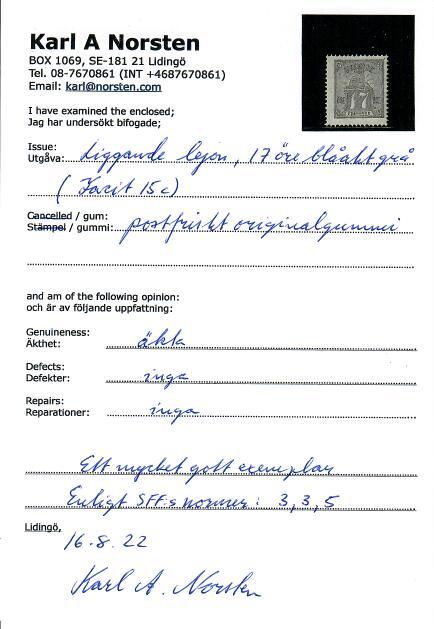 Karl A Norsten
BOX 1069, SE-181 21 Lidingö
Tel. 08-7670861 (INT +4687670861)
Email: karl@norsten.com
I have examined the enclosed;
Jag har undersökt bifogade;
Issue:
Utgåva: Liggande lejon, 17 öre blåaktgrå
(Facit 15c)
Cancelled / gum:
Stämpel / gummi: postfriskt originalgummi
and am of the following opinion:
och är av följande uppfattning:
Genuineness:
Äkthet: äkta
Defects:
Defekter: inga
Repairs:
Reparationer: inga
Ett mycket gott exemplar
Enligt SFF:s normer: 3, 3, 5
Lidingö,
16.8.22
Karl A. Norsten
17